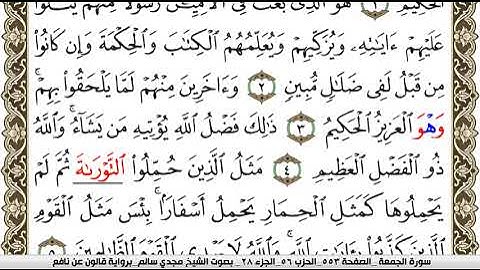 الْحَكِيمِ ١ هُوَ الَّذِي بَعَثَ فِي الْأُمِّيِّينَ رَسُولًا مِنْهُمْ يَتْلُوا
عَلَيْهِمْ ءَايَٰتِهِ وَيُزَكِّيهِمْ وَيُعَلِّمُهُمُ الْكِتَٰبَ وَالْحِكْمَةَ وَإِن كَانُوا
مِن قَبْلُ لَفِي ضَلَٰلٍ مُّبِينٍ ٢ وَءَاخَرِينَ مِنْهُمْ لَمَّا يَلْحَقُوا بِهِمْ
وَهْوَ الْعَزِيزُ الْحَكِيمُ ٣ ذَٰلِكَ فَضْلُ اللَّهِ يُؤْتِيهِ مَن يَشَآءُ وَاللَّهُ
ذُو الْفَضْلِ الْعَظِيمِ ٤ مَثَلُ الَّذِينَ حُمِّلُوا التَّوْرَىٰةَ ثُمَّ لَمْ
يَحْمِلُوهَا كَمَثَلِ الْحِمَارِ يَحْمِلُ أَسْفَارًا بِئْسَ مَثَلُ الْقَوْمِ
الَّذِينَ كَذَّبُوا بِـَٔايَٰتِ اللَّهِ وَاللَّهُ لَا يَهْدِي الْقَوْمَ الظَّٰلِمِينَ ٥
سورة الجمعة_ الصفحة ٥٥٣_الحزب ٥٦_ الجزء ٢٨_ بصوت الشيخ مجدي سالم_ برواية قالون عن نافع